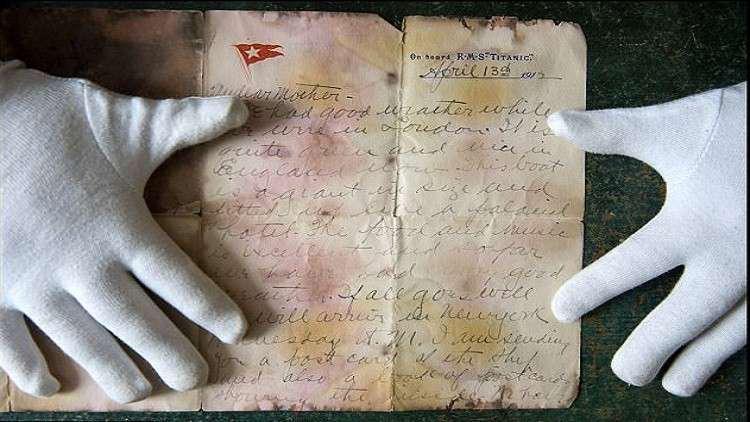 On board R·M·S "TITANIC."
April 13th 1912
My dear Mother-
had good weather while
we were in London. It is
quite green and nice in
England now. This boat
is a giant in size and
fitted up like a palacial
hotel. The food and music
is excellent and so far
we have had very good
weather. If all goes well
will arrive in New York
Wednesday A.M. I am sending
you a post card of the ship
and also a book of post cards
showing the inside